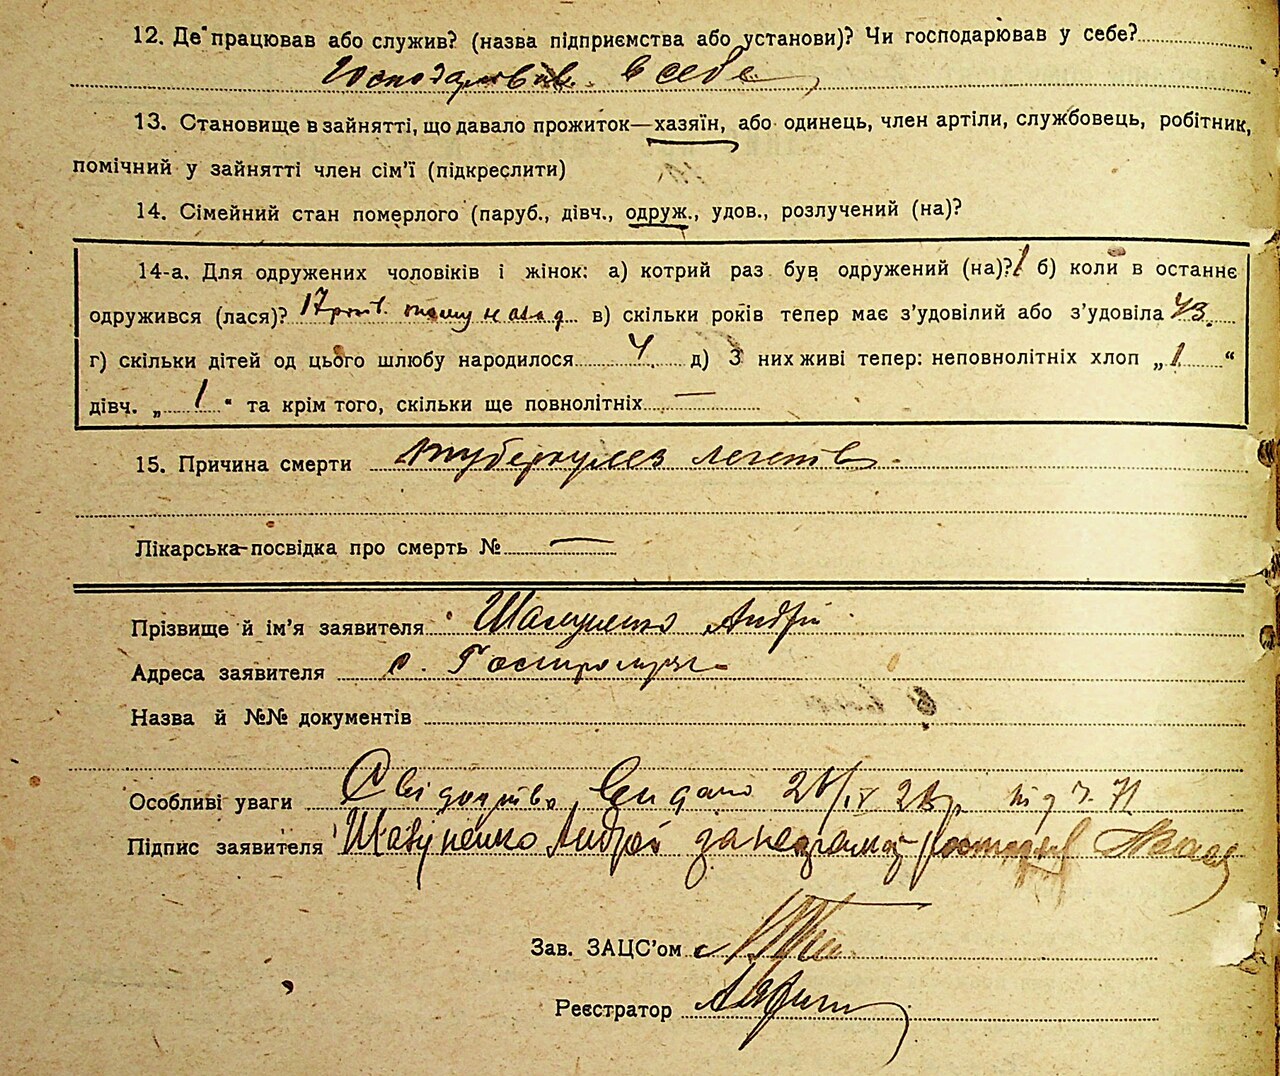 12. Де працював або служив? (назва підприємства або установи)? Чи господарював у себе?
Господарював в себе
13. Становище в зайнятті, що давало прожиток—хазяїн, або одинець, член артіли, службовець, робітник,
помічний у зайнятті член сім’ї (підкреслити)
14. Сімейний стан померлого (паруб., дівч., одруж., удов., розлучений (на)?
14-а. Для одружених чоловіків і жінок: а) котрий раз був одружений (на)? 1 б) коли в останнє
одружився (лася)? 17 рокiв тому назад в) скільки років тепер має з’удовілий або з’удовіла 43.
г) скільки дітей од цього шлюбу народилося 4 д) З них живі тепер: неповнолітніх хлоп „ 1 “
дівч. „ 1 “ та крім того, скільки ще повнолітніх —
15. Причина смерти туберкулез легенів
Лікарська-посвідка про смерть № —
Прізвище й ім’я заявителя Шавуненко Андрій
Адреса заявителя с.
Назва й №№ документів
Особливі уваги Свідоцтво видано 28/IV 28р. під ч. 71
Підпис заявителя Шавуненко Андрей за неграмот
Зав. ЗАЦС’ом
Реєстратор